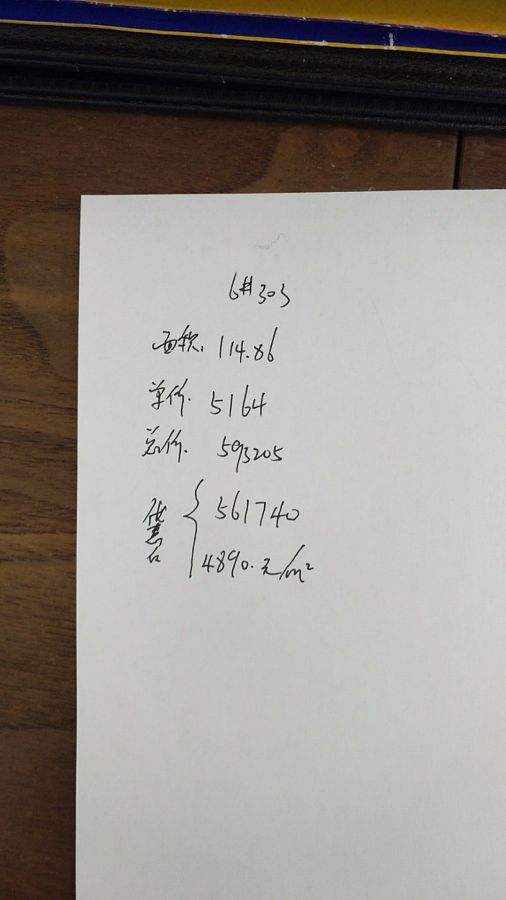 6#303
面积: 114.86
单价. 5164
总价. 593205
优惠后 { 561740
4890.元/m²